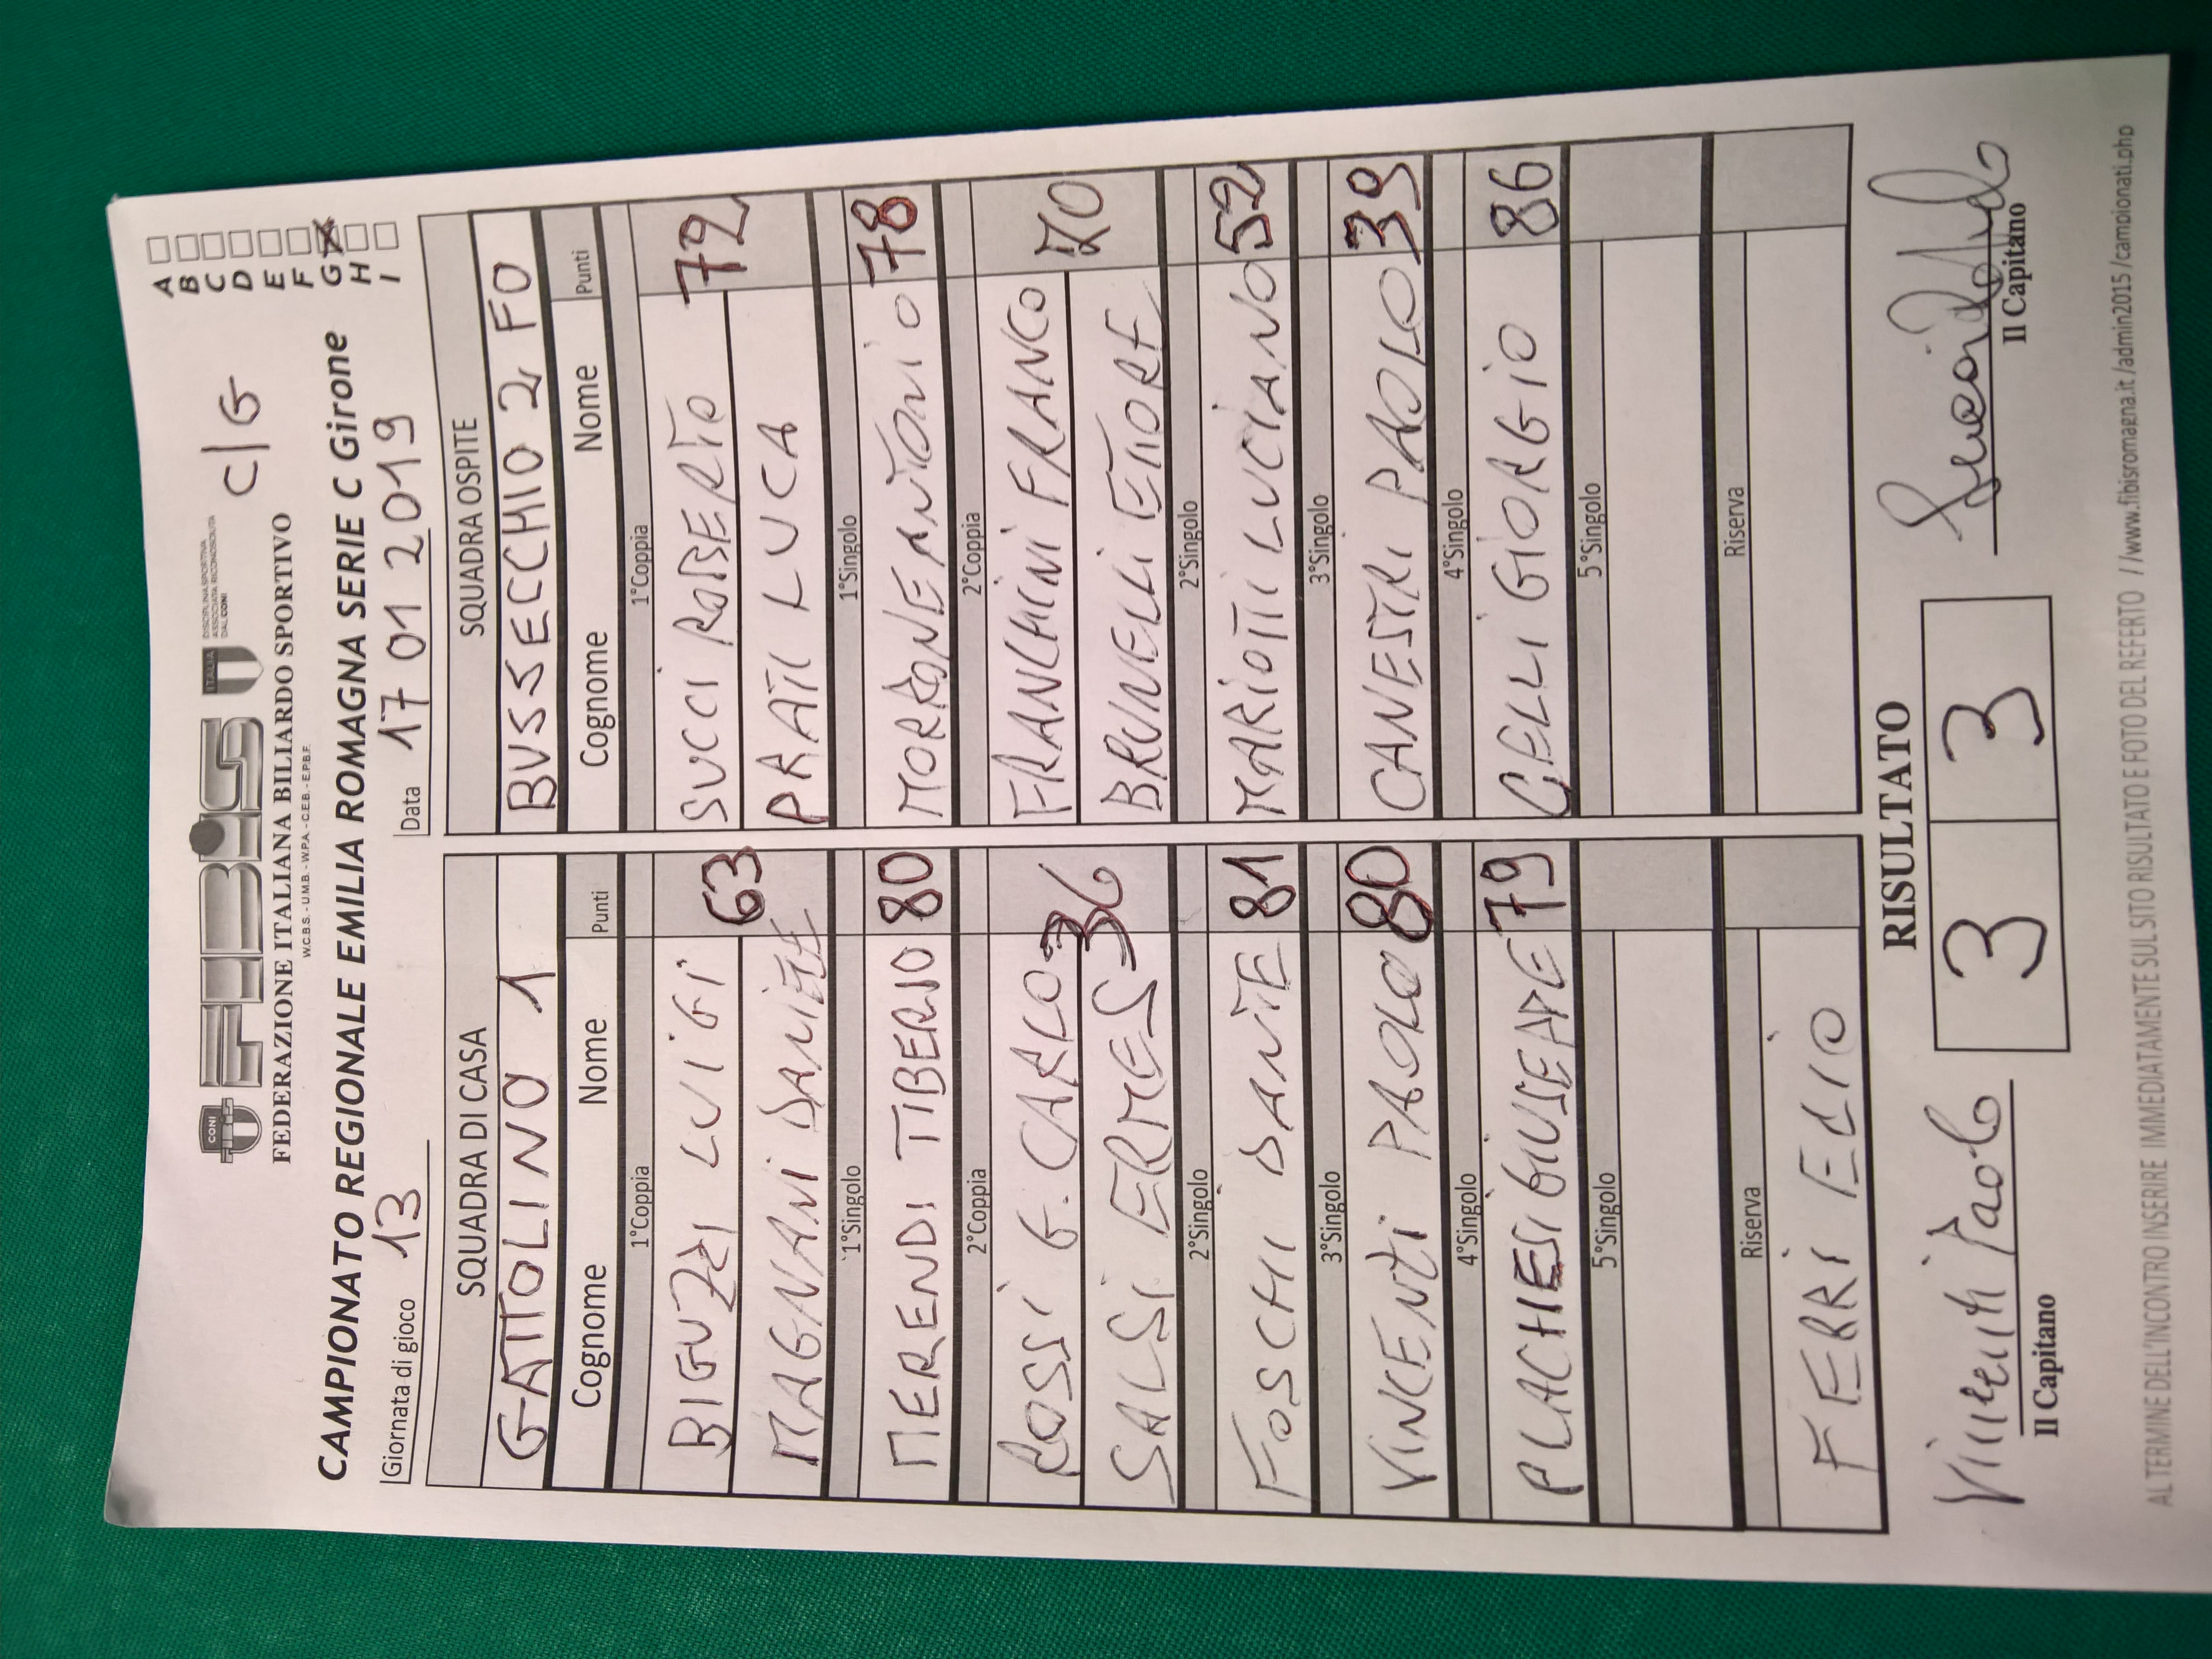 FIBiS
CONI
ITALIA
DISCIPLINA SPORTIVA
ASSOCIATA RICONOSCIUTA
DAL CONI
C/G
FEDERAZIONE ITALIANA BILIARDO SPORTIVO
W.C.B.S. - U.M.B. - W.P.A. - C.E.B. - E.P.B.F.
CAMPIONATO REGIONALE EMILIA ROMAGNA SERIE C Girone
A
B
C
D
E
F
G X
H
I
Giornata di gioco 13
Data 17 01 2019
SQUADRA DI CASA
GATTOLINO 1
Cognome Nome Punti
1°Coppia
BIGUZZI LUIGI
MAGNANI DANIELE
63
1°Singolo
MERENDI TIBERIO 80
2°Coppia
ROSSI G. CARLO
SALSI ERMES
36
2°Singolo
FOSCHI DANTE 81
3°Singolo
VINCENTI PAOLO 80
4°Singolo
PLACHESI GIUSEPPE 79
5°Singolo
Riserva
FERRI
SQUADRA OSPITE
BUSSECCHIO 2 FO
Cognome Nome Punti
1°Coppia
SUCCI ROBERTO
PRATI LUCA
72
1°Singolo
MORRONE ANTONIO 78
2°Coppia
FRANCHINI FRANCO
BRUNELLI ETTORE
70
2°Singolo
MARIOTTI LUCIANO 52
3°Singolo
CANESTRI PAOLO 39
4°Singolo
GELLI GIORGIO 86
5°Singolo
Riserva
RISULTATO
3 3
Vincenti Paolo
Il Capitano
Il Capitano
AL TERMINE DELL'INCONTRO INSERIRE IMMEDIATAMENTE SUL SITO RISULTATO E FOTO DEL REFERTO //www.fibisromagna.it/admin2015/campionati.php